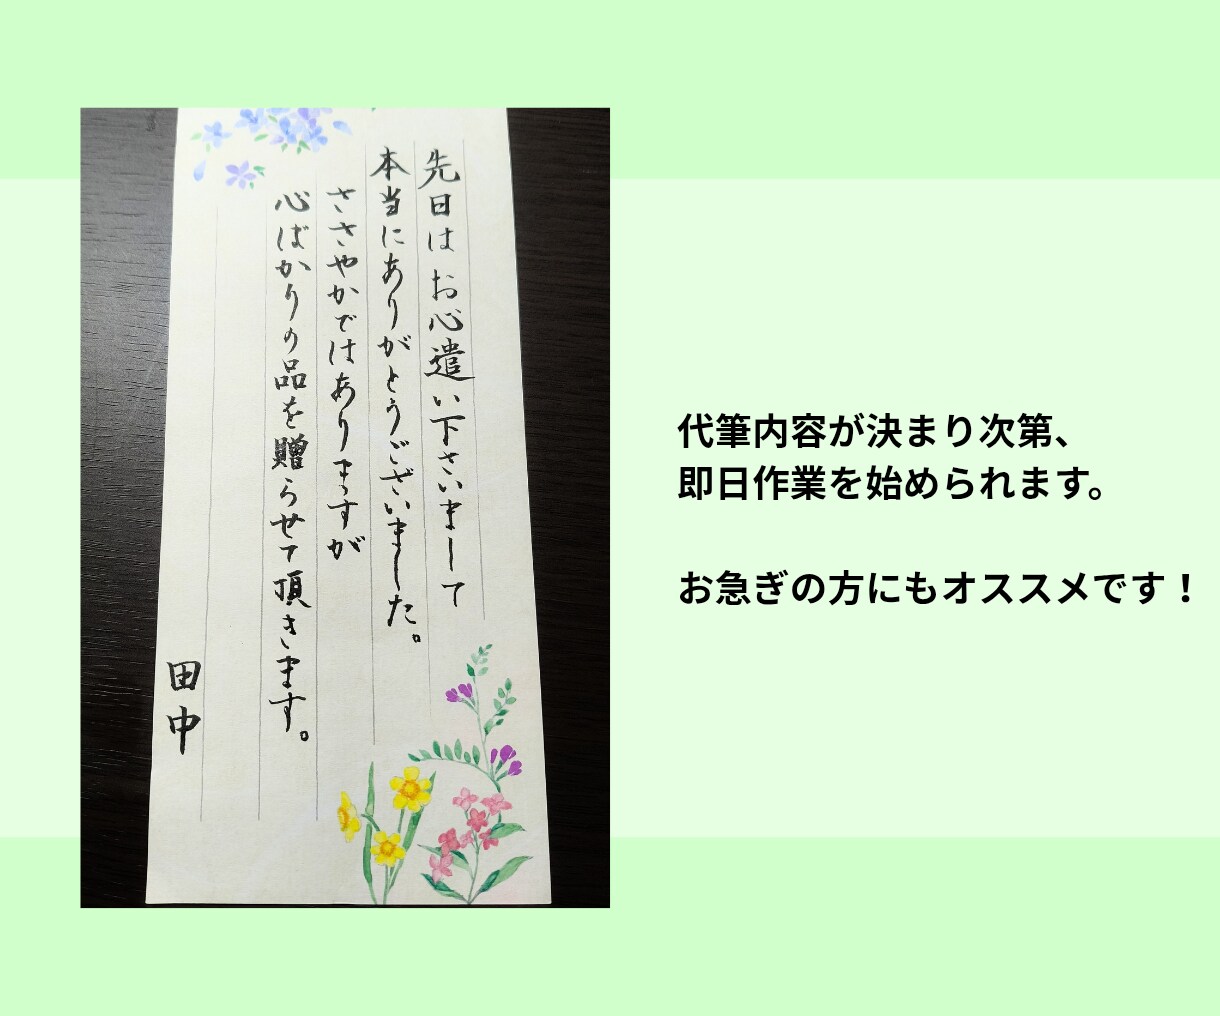 先日はお心遣い下さいまして
本当にありがとうございました。
ささやかではありますが
心ばかりの品を贈らせて頂きます。
田中
代筆内容が決まり次第、
即日作業を始められます。
お急ぎの方にもオススメです！